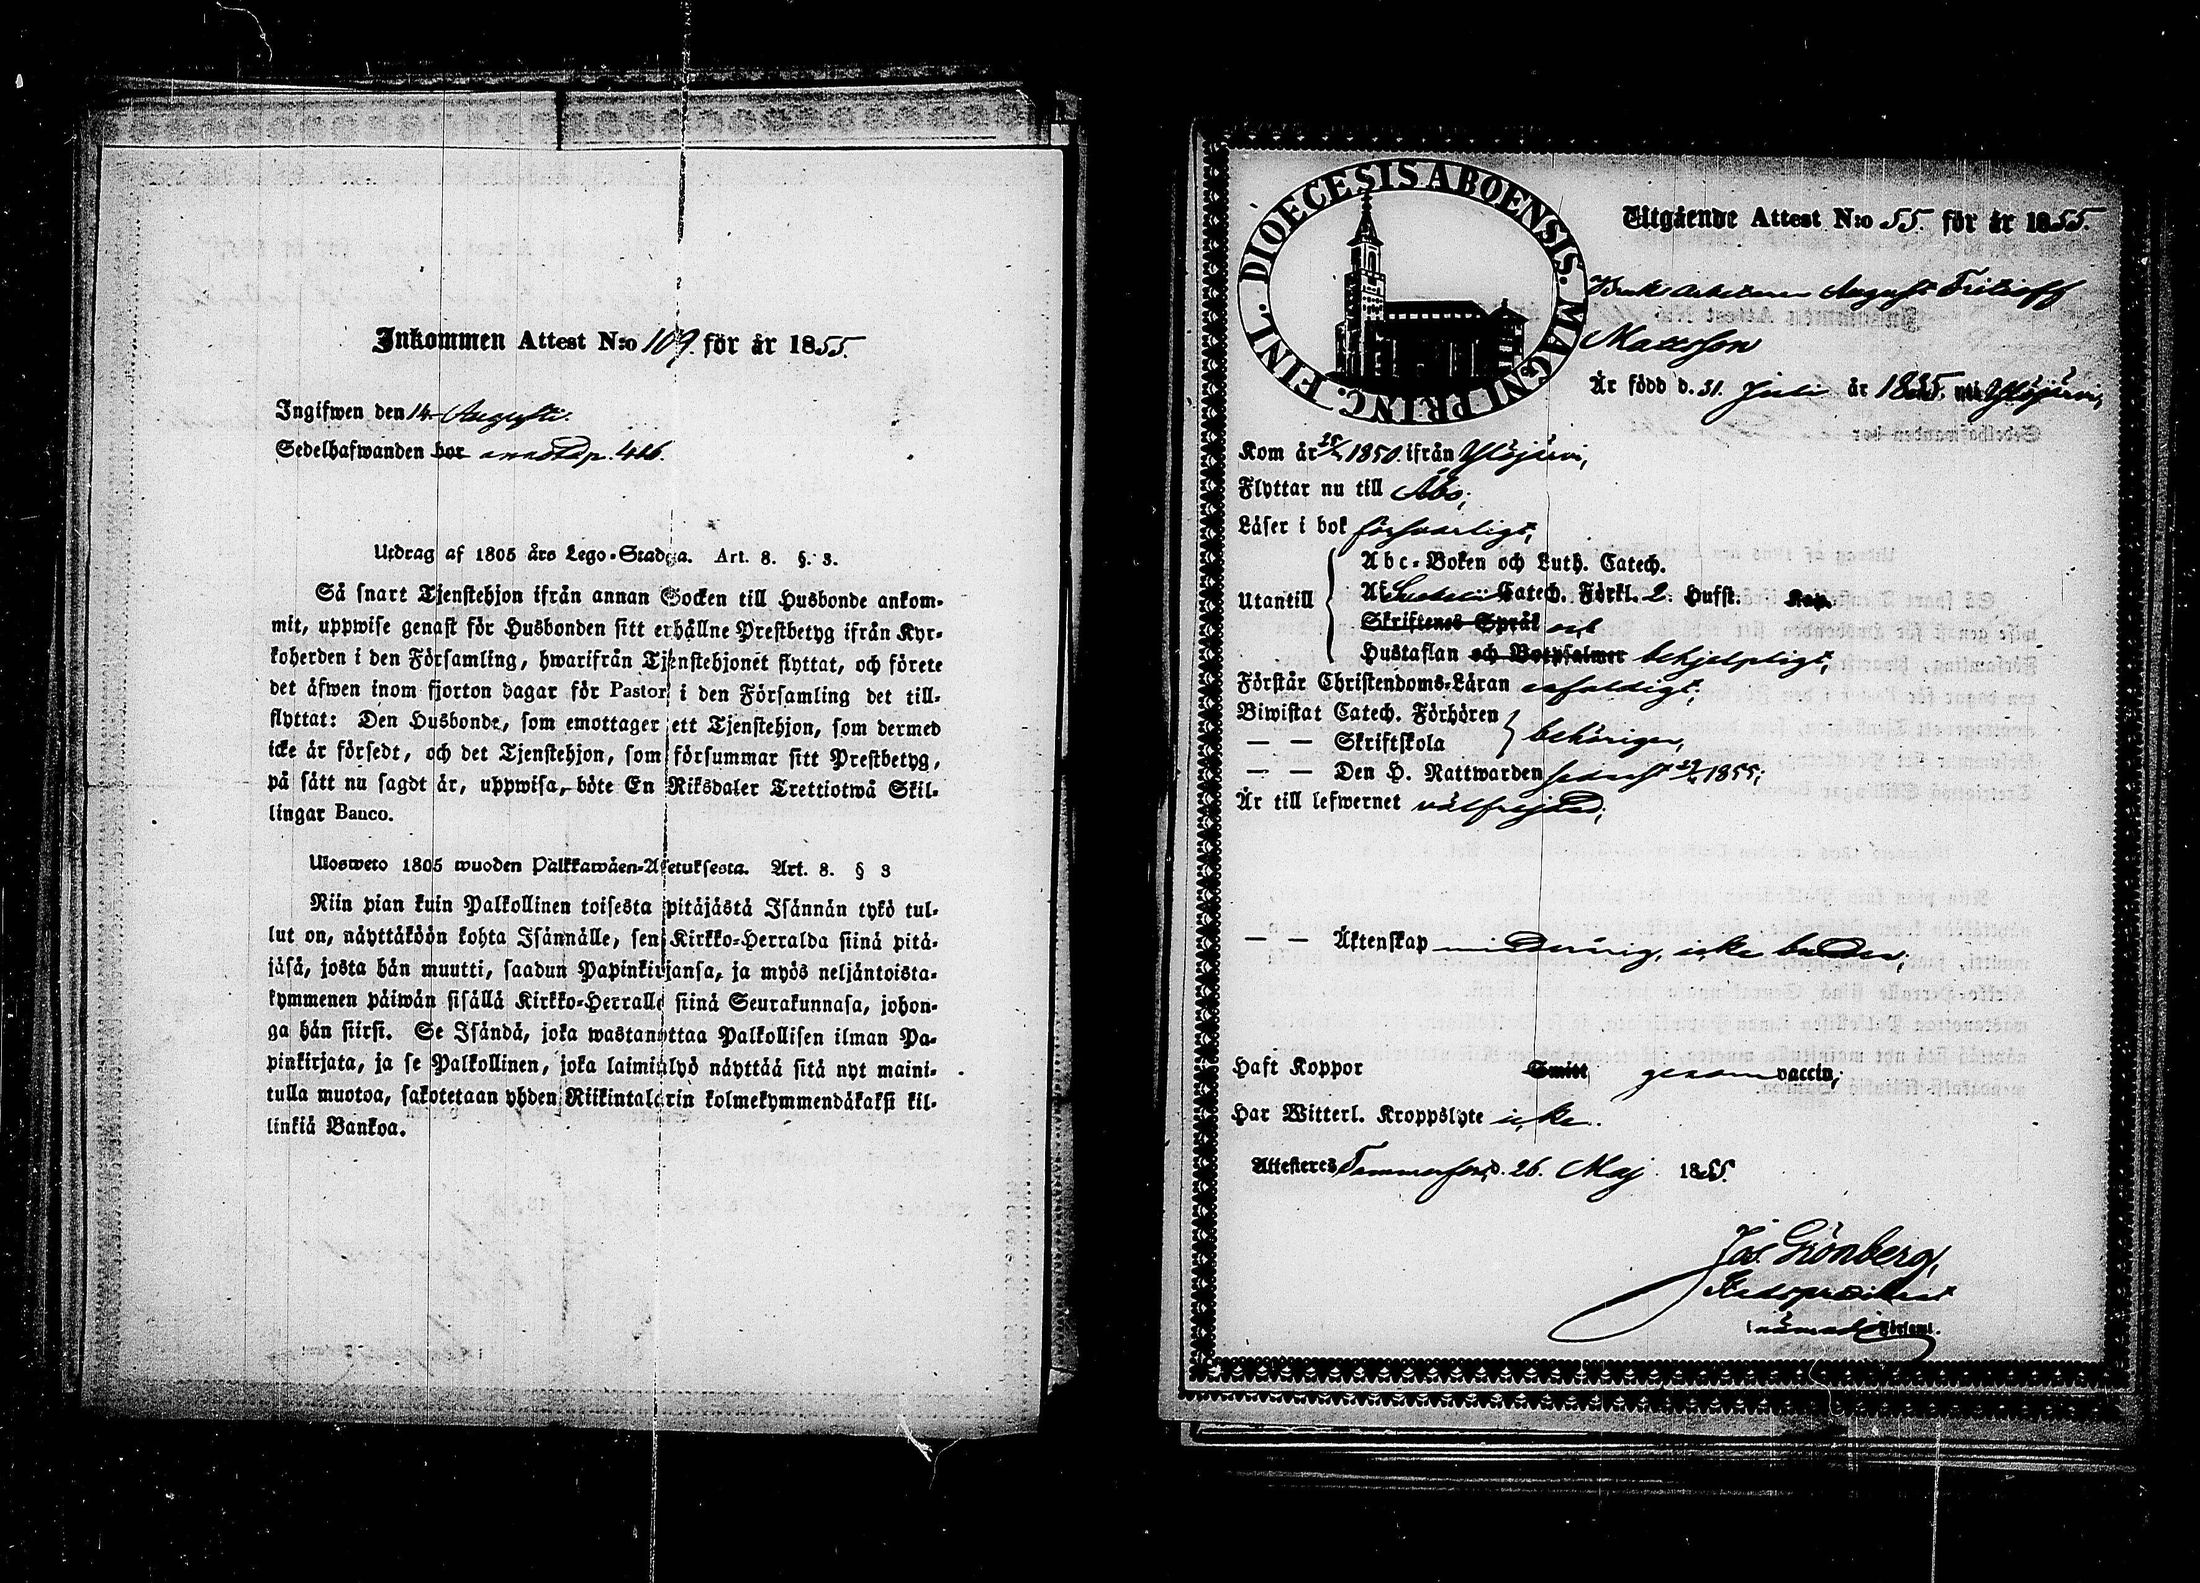 Inkommen Attest N:o 109. för år 1855.
Ingifwen den 14 Augusti.
Sedelhafwanden bor annotad p. 426.
Utdrag af 1805 års Lego-Stadga. Art. 8. §. 3.
Så snart Tjenstehjon ifrån annan Socken till Husbonde ankom-
mit, uppwise genast för Husbonden sitt erhållne Prestbetyg ifrån Kyr-
koherden i den Församling, hwarifrån Tjenstehjonet flyttat, och förete
det äfwen inom fjorton dagar för Pastor i den Församling det till-
flyttat: Den Husbonde, som emottager ett Tjenstehjon, som dermed
icke är försedt, och det Tjenstehjon, som försummar sitt Prestbetyg,
på sätt nu sagdt är, uppwisa, böte En Riksdaler Trettiotwå Skil-
lingar Banco.
Ulosweto 1805 wuoden Palkkawäen-Asetuksesta. Art. 8. § 3
Niin pian kuin Palkollinen toisesta pitäjästä Isännän tykö tul-
lut on, näyttäköön kohta Isännälle, sen Kirkko-Herralda siinä pitä-
jäsä, josta hän muutti, saadun Papinkirjansa, ja myös neljäntoista-
kymmenen päiwän sisällä Kirkko-Herralle siinä Seurakunnasa, johon-
ga hän siirsi. Se Isändä, joka wastanottaa Palkollisen ilman Pa-
pinkirjata, ja se Palkollinen, joka laiminlyö näyttää sitä nyt maini-
tulla muotoa, sakotetaan yhden Riikintalarin kolmekymmendäkaksi kil-
linkiä Bankoa.
FINL. DIOECESIS ABOENSIS. MAGNI PRINC.
Utgående Attest N:o 55. för år 1855.
Bruks arbetaren August Fritioff
Mattsson
Är född d. 31. Juli år 1835. uti Ylöjärvi,
Kom år 1850. ifrån Ylöjärvi,
Flyttar nu till Åbo;
Läser i bok försvarligt,
Utantill
Abc-Boken och Luth. Catech.
Af Catech. Förkl. 2. Hufst. Kap.
Skriftenes Språk och
Hustaflan och Botpsalmer behjelpligt,
Förstår Christendoms-Läran enfaldigt;
Biwistat Catech. Förhören
— — Skriftskola behörigen,
— — Den H. Nattwarden sednast 1855;
Är till lefwernet välfrejdad;
— — Äktenskap minderårig, icke bunden;
Haft Koppor Smitt genom vaccin;
Har Witterl. Kroppslyte icke.
Attesteres Tammerfors, d. 26. Maj 1855.
Jos. Grönberg,
i Församl.